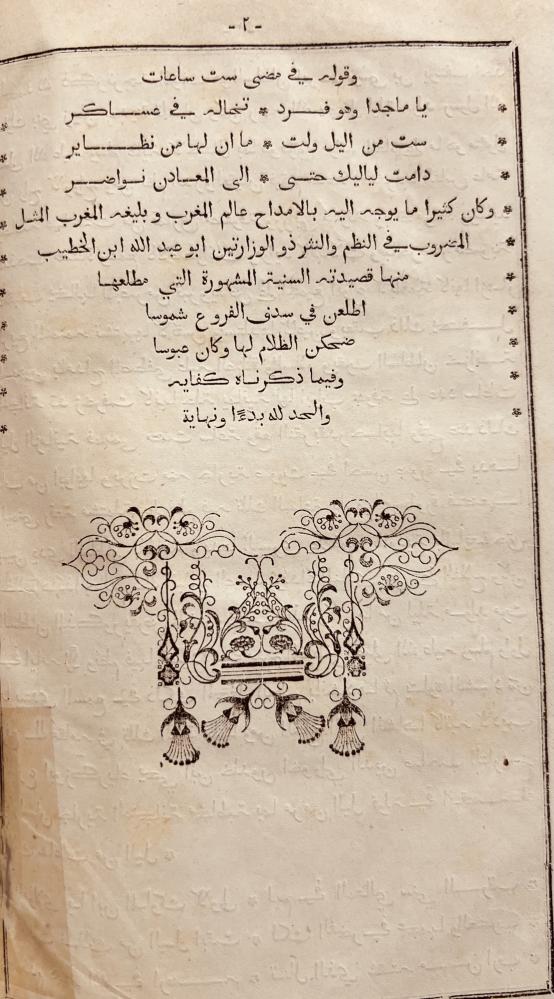 - ٢ -
وقوله في مضى ست ساعات
يا ماجدا وهو فرد * تخاله في عساكر
ست من اليل ولت * ما ان لها من نظاير
دامت لياليك حتى * الى المعادن نواضر
وكان كثيرا ما يوجه اليه بالامداح عالم المغرب وبليغه المغرب المثل
المضروب في النظم والنثر ذو الوزارتين ابو عبد الله ابن الخطيب
منها قصيدته السنية المشهورة التي مطلعها
اطلعن في سدف الفروع شموسا
ضحكن الظلام لها وكان عبوسا
وفيما ذكرناه كفايه
والحد لله بدءًا ونهاية